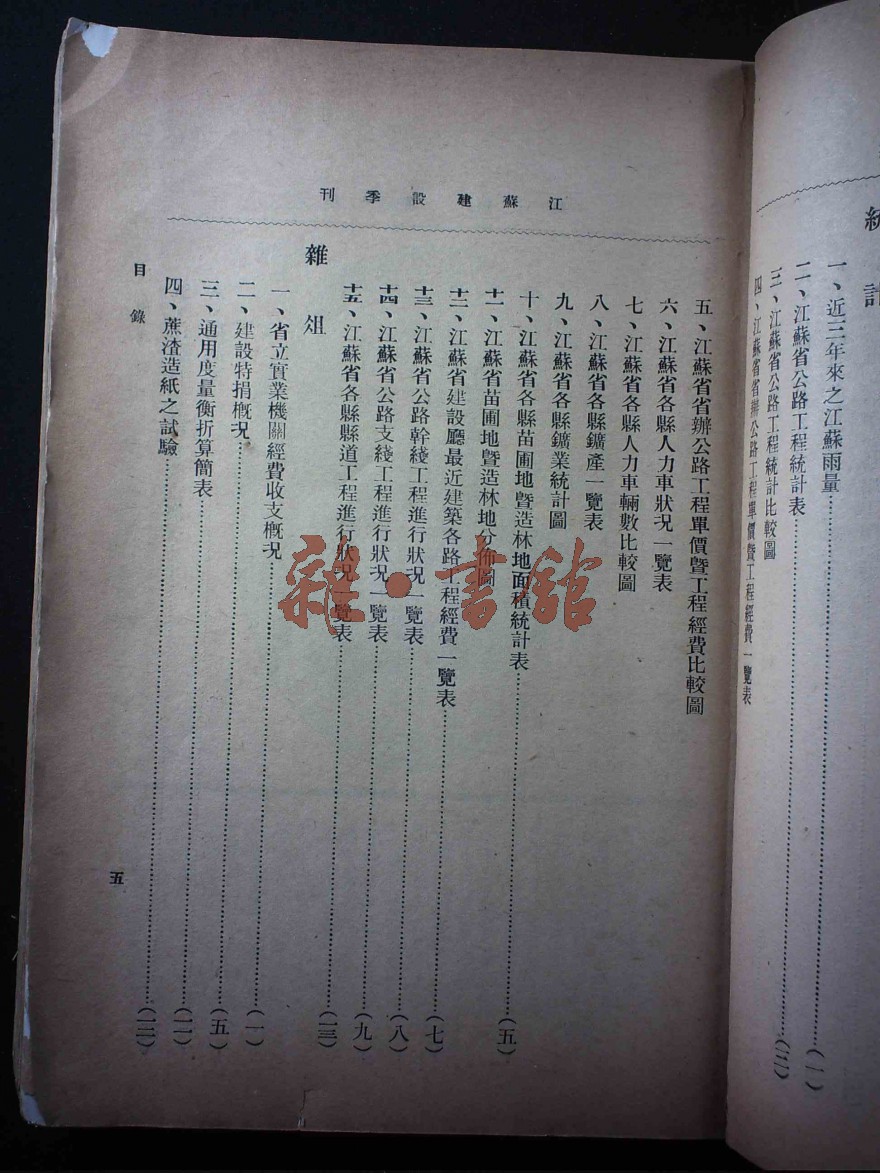 統計
一、近三年來之江蘇雨量……(一)
二、江蘇省公路工程統計表……(三)
三、江蘇省公路工程統計比較圖
四、江蘇省省辦公路工程單價暨工程經費一覽表
江蘇建設季刊
五、江蘇省省辦公路工程單價暨工程經費比較圖
六、江蘇省各縣人力車狀况一覽表
七、江蘇省各縣人力車輛數比較圖
八、江蘇省各縣鑛產一覽表
九、江蘇省各縣鑛業統計圖
十、江蘇省各縣苗圃地暨造林地面積統計表……(五)
十一、江蘇省苗圃地暨造林地分佈圖
十二、江蘇省建設廳最近建築各路工程經費一覽表……(七)
十三、江蘇省公路幹綫工程進行狀况一覽表……(八)
十四、江蘇省公路支綫工程進行狀况一覽表……(九)
十五、江蘇省各縣縣道工程進行狀况一覽表……(一三)
雜俎
一、省立實業機關經費收支概况……(一)
二、建設特捐概况……(五)
三、通用度量衡折算簡表……(一一)
四、蔗渣造紙之試驗……(一二)
目錄
五
雜·書館